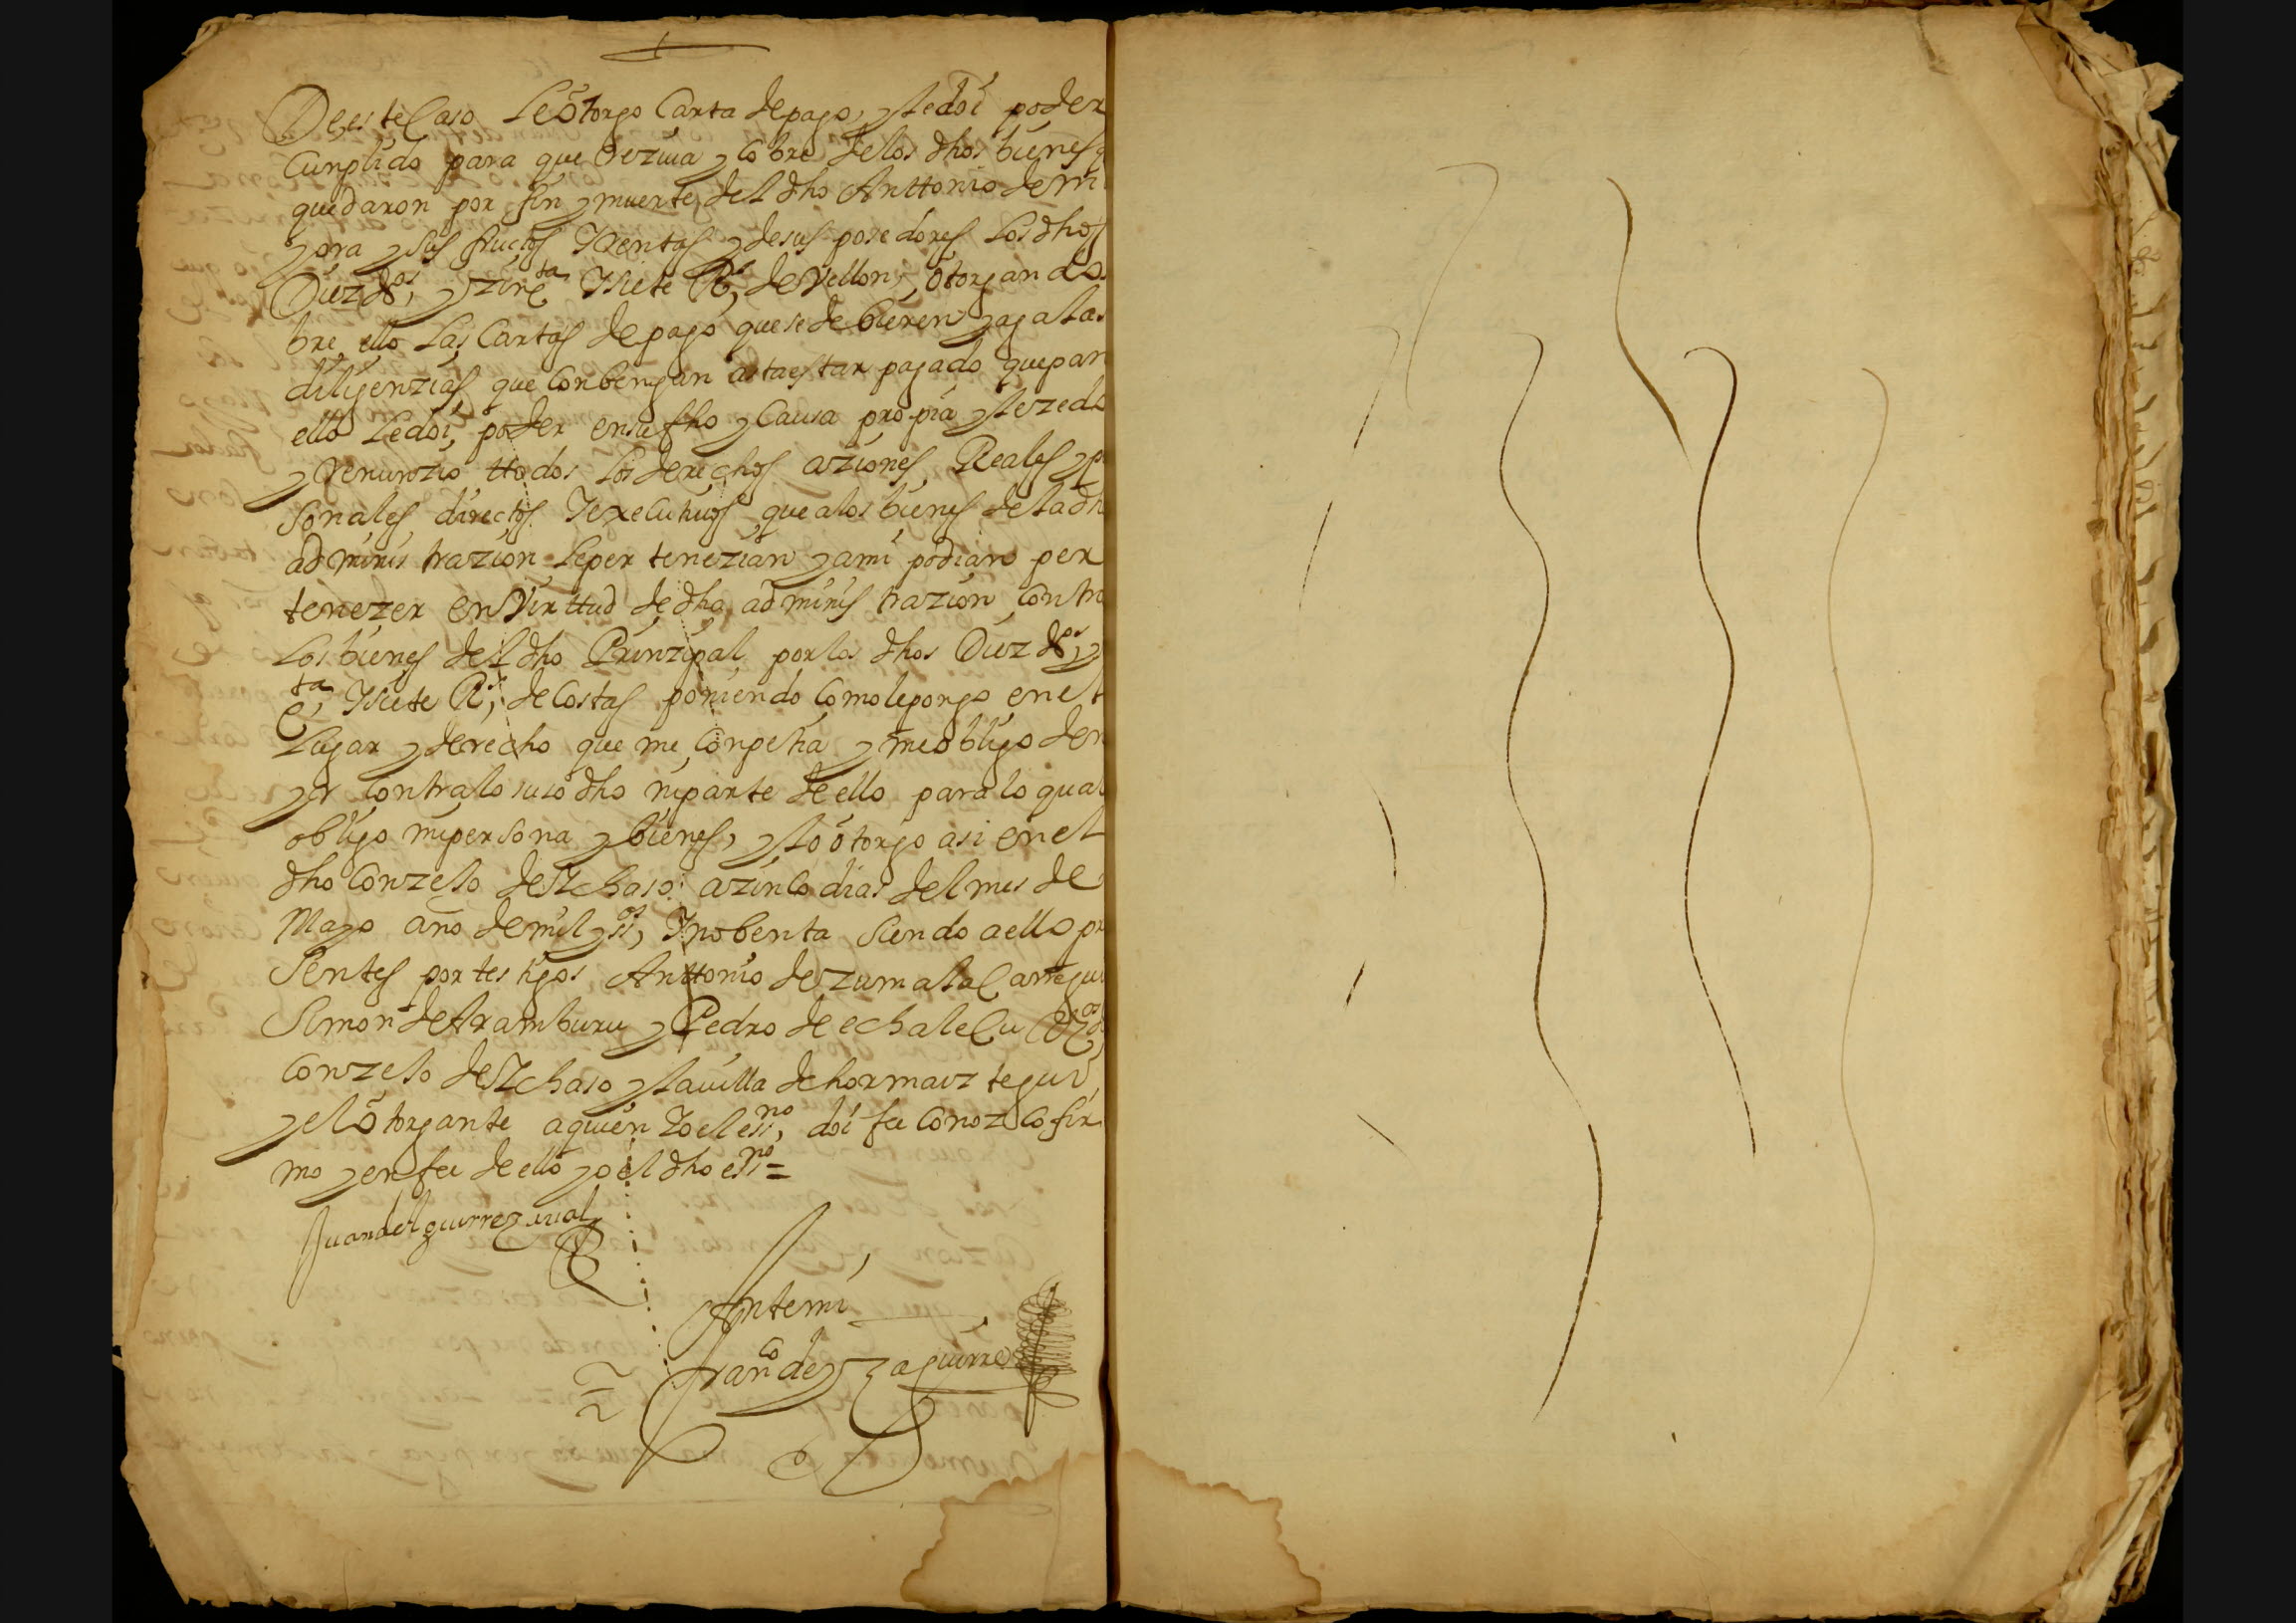 De este Caso Le otorgo Carta de pago, y le doi poder
Cunplido para que Reziua y Cobre de los dhos bienes q
quedaron por fin y muerte del dho Anttonio de m
yora y sus fructos Y Rentas y de sus posedores Los dhos
Diez ds, y zinqta Y siete Rs, de Vellon, otorgando
bre ello Las Cartas de pago que se debieren y aga las
diligenzias que Conbengan asta estar pagado que par
ello Le doi poder en su fho y Causa propia y le zedo
y Renunzio ttodos Los derechos aziones Reales y p
sonales directos Y executiuos que a los bienes de la dh
administrazion Le pertenezian y a mi podian per
tenezer en Virttud de dha administrazion Contra
Los bienes del dho Prinzipal por los dhos Diez ds, y
ta Y siete Rs, de Costas poniendo Como le pongo en el
Lugar y derecho que me Conpetia y me obligo de n
yr Contra lo suso dho ni parte de ello para lo qual
obligo mi persona y bienes, y lo otorgo asi en el
dho Conzejo de Ychaso a zinco dias del mes de
Mayo año de mil y ssos, Y nobenta Siendo a ello pr
Sentes por testigos Anttonio de zumalaCarregui
Simon de Aramburu y Pedro de echaleCu Vzos
Conzejo de Ychaso y la uilla de hormaiztegui,
y el otorgante a quien Yo el essno, doi fee Conozco fir
mo y en fee de ello yo el dho essno =
Juan de Aguirrezaual
Ante mi
Franco de Yzaguirre